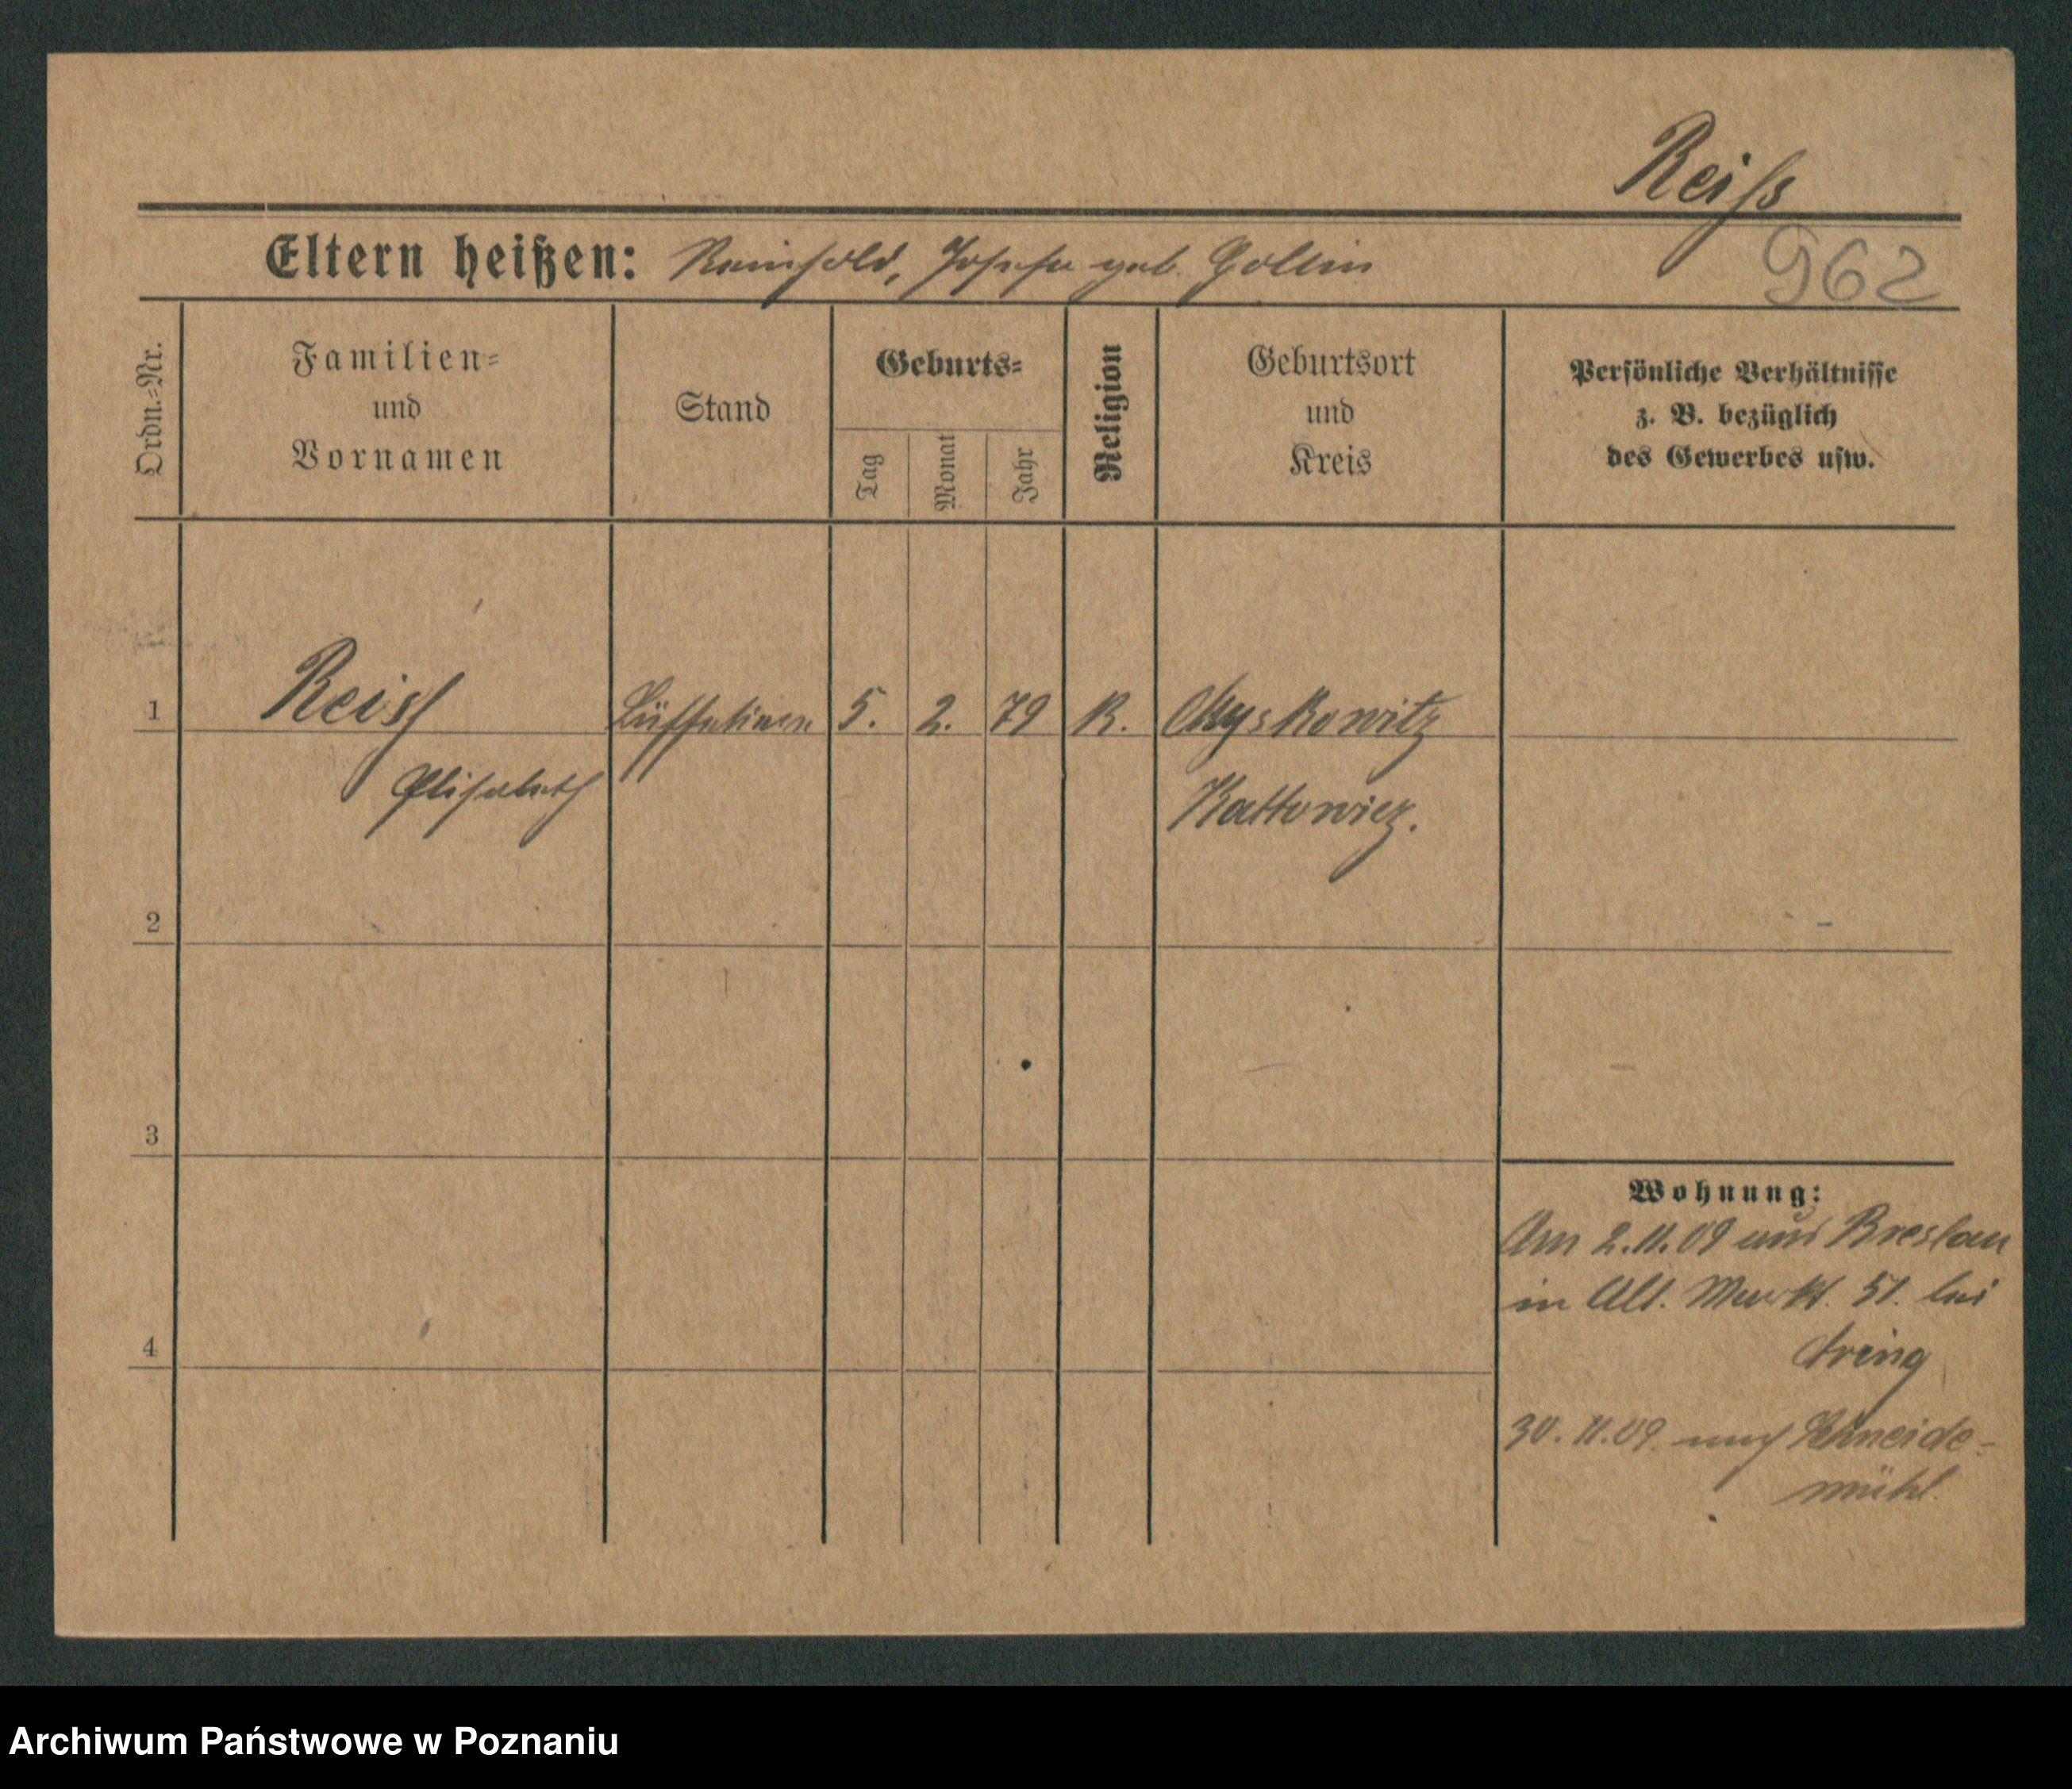 Reiß
Eltern heißen: Reinhold, Josefa geb. Gollin
962
Ordn.=Nr.
Familien=
und
Vornamen
Stand
Geburts=
Tag
Monat
Jahr
Religion
Geburtsort
und
Kreis
Persönliche Verhältnisse
z. B. bezüglich
des Gewerbes usw.
1 Reiß Büffetiere 5. 2. 79 K. Myskowitz
Elisabeth Kattowicz.
2
3
4
Wohnung:
Am 2.11.09 aus Breslau
in Alt. Markt. 51. bei
30.11.09. nach Schneide-
mühl.
Archiwum Państwowe w Poznaniu